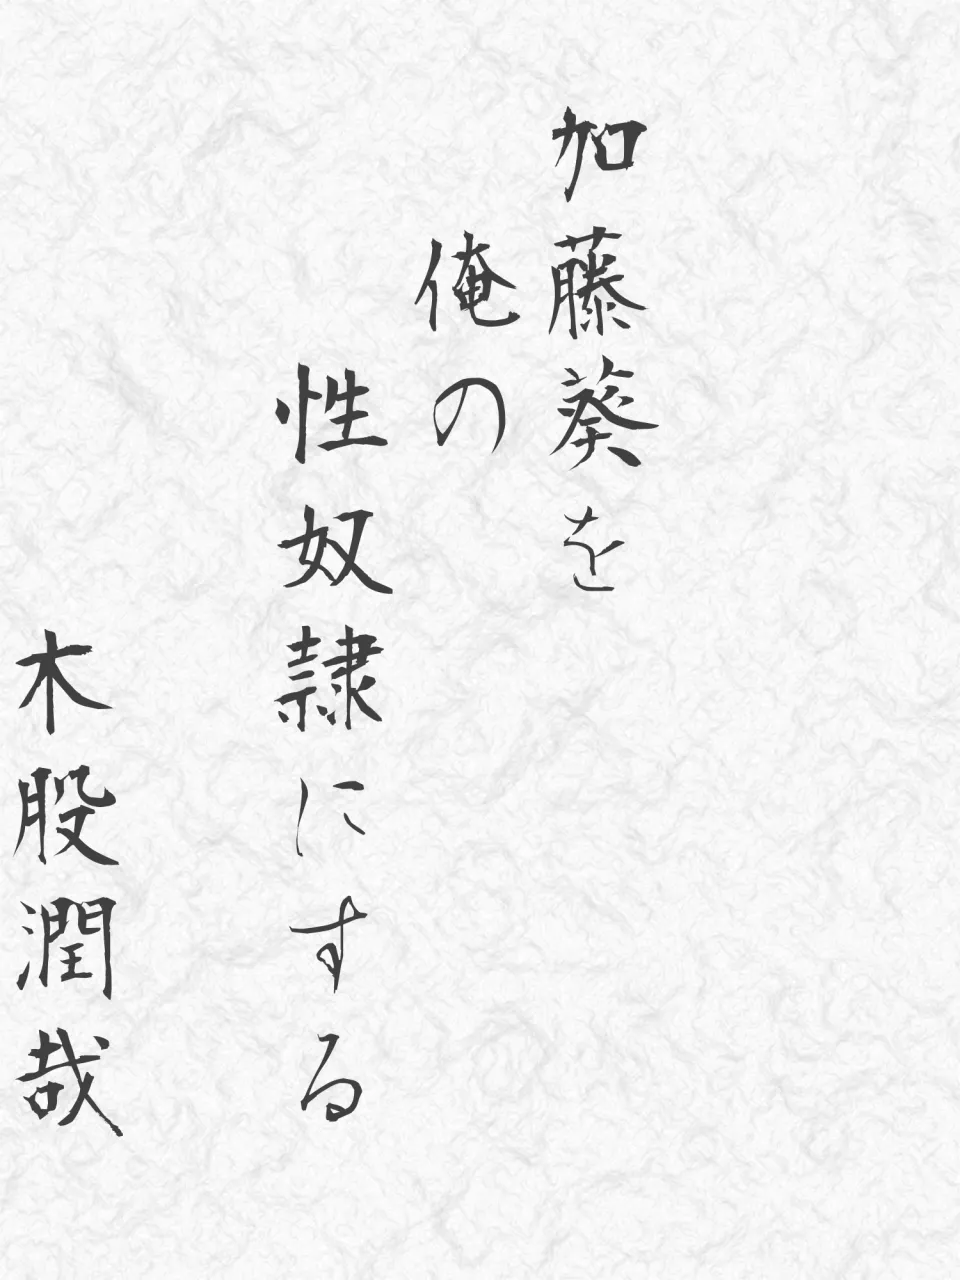 加藤葵を
俺の
性奴隷にする
木股潤哉